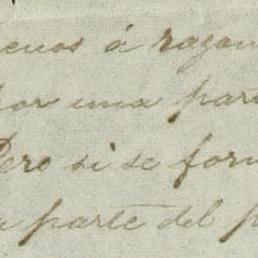 enos á razon
por una par
Pero si se for
a parte del p